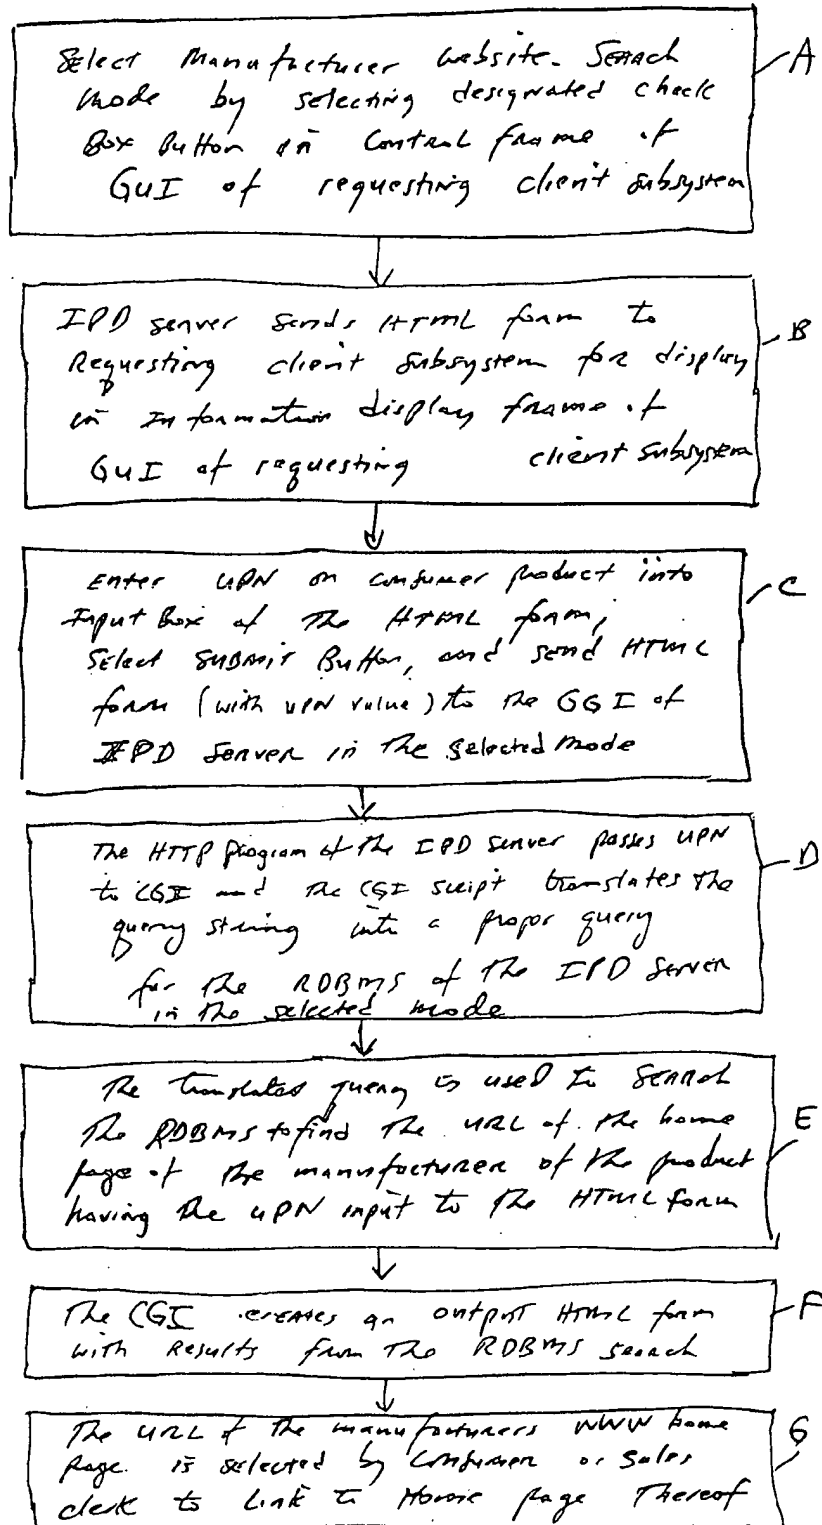 Select Manufacturer Website Search A
mode by selecting designated check
Box Button in Control frame of
GUI of requesting client subsystem
IPD server sends HTML form to
Requesting client subsystem for display B
in Information display frame of
GUI of requesting client subsystem
Enter UPN on consumer product into C
Input Box of the HTML form,
Select SUBMIT Button, and send HTML
form (with UPN value) to the GGI of
IPD Server in the selected mode
The HTTP program of the IPD server passes UPN D
to CGI and the CGI script translates the
query string into a propor query
for the RDBMS of the IPD Server
in the selected mode
The translated query is used to Search
the RDBMS to find the URL of the home E
page of the manufacturer of the product
having the UPN input to the HTML form
The CGI creates an output HTML form F
with Results from the RDBMS search
The URL of the manufacturers WWW home G
page is selected by Consumer or Sales
clerk to Link to Home page Thereof